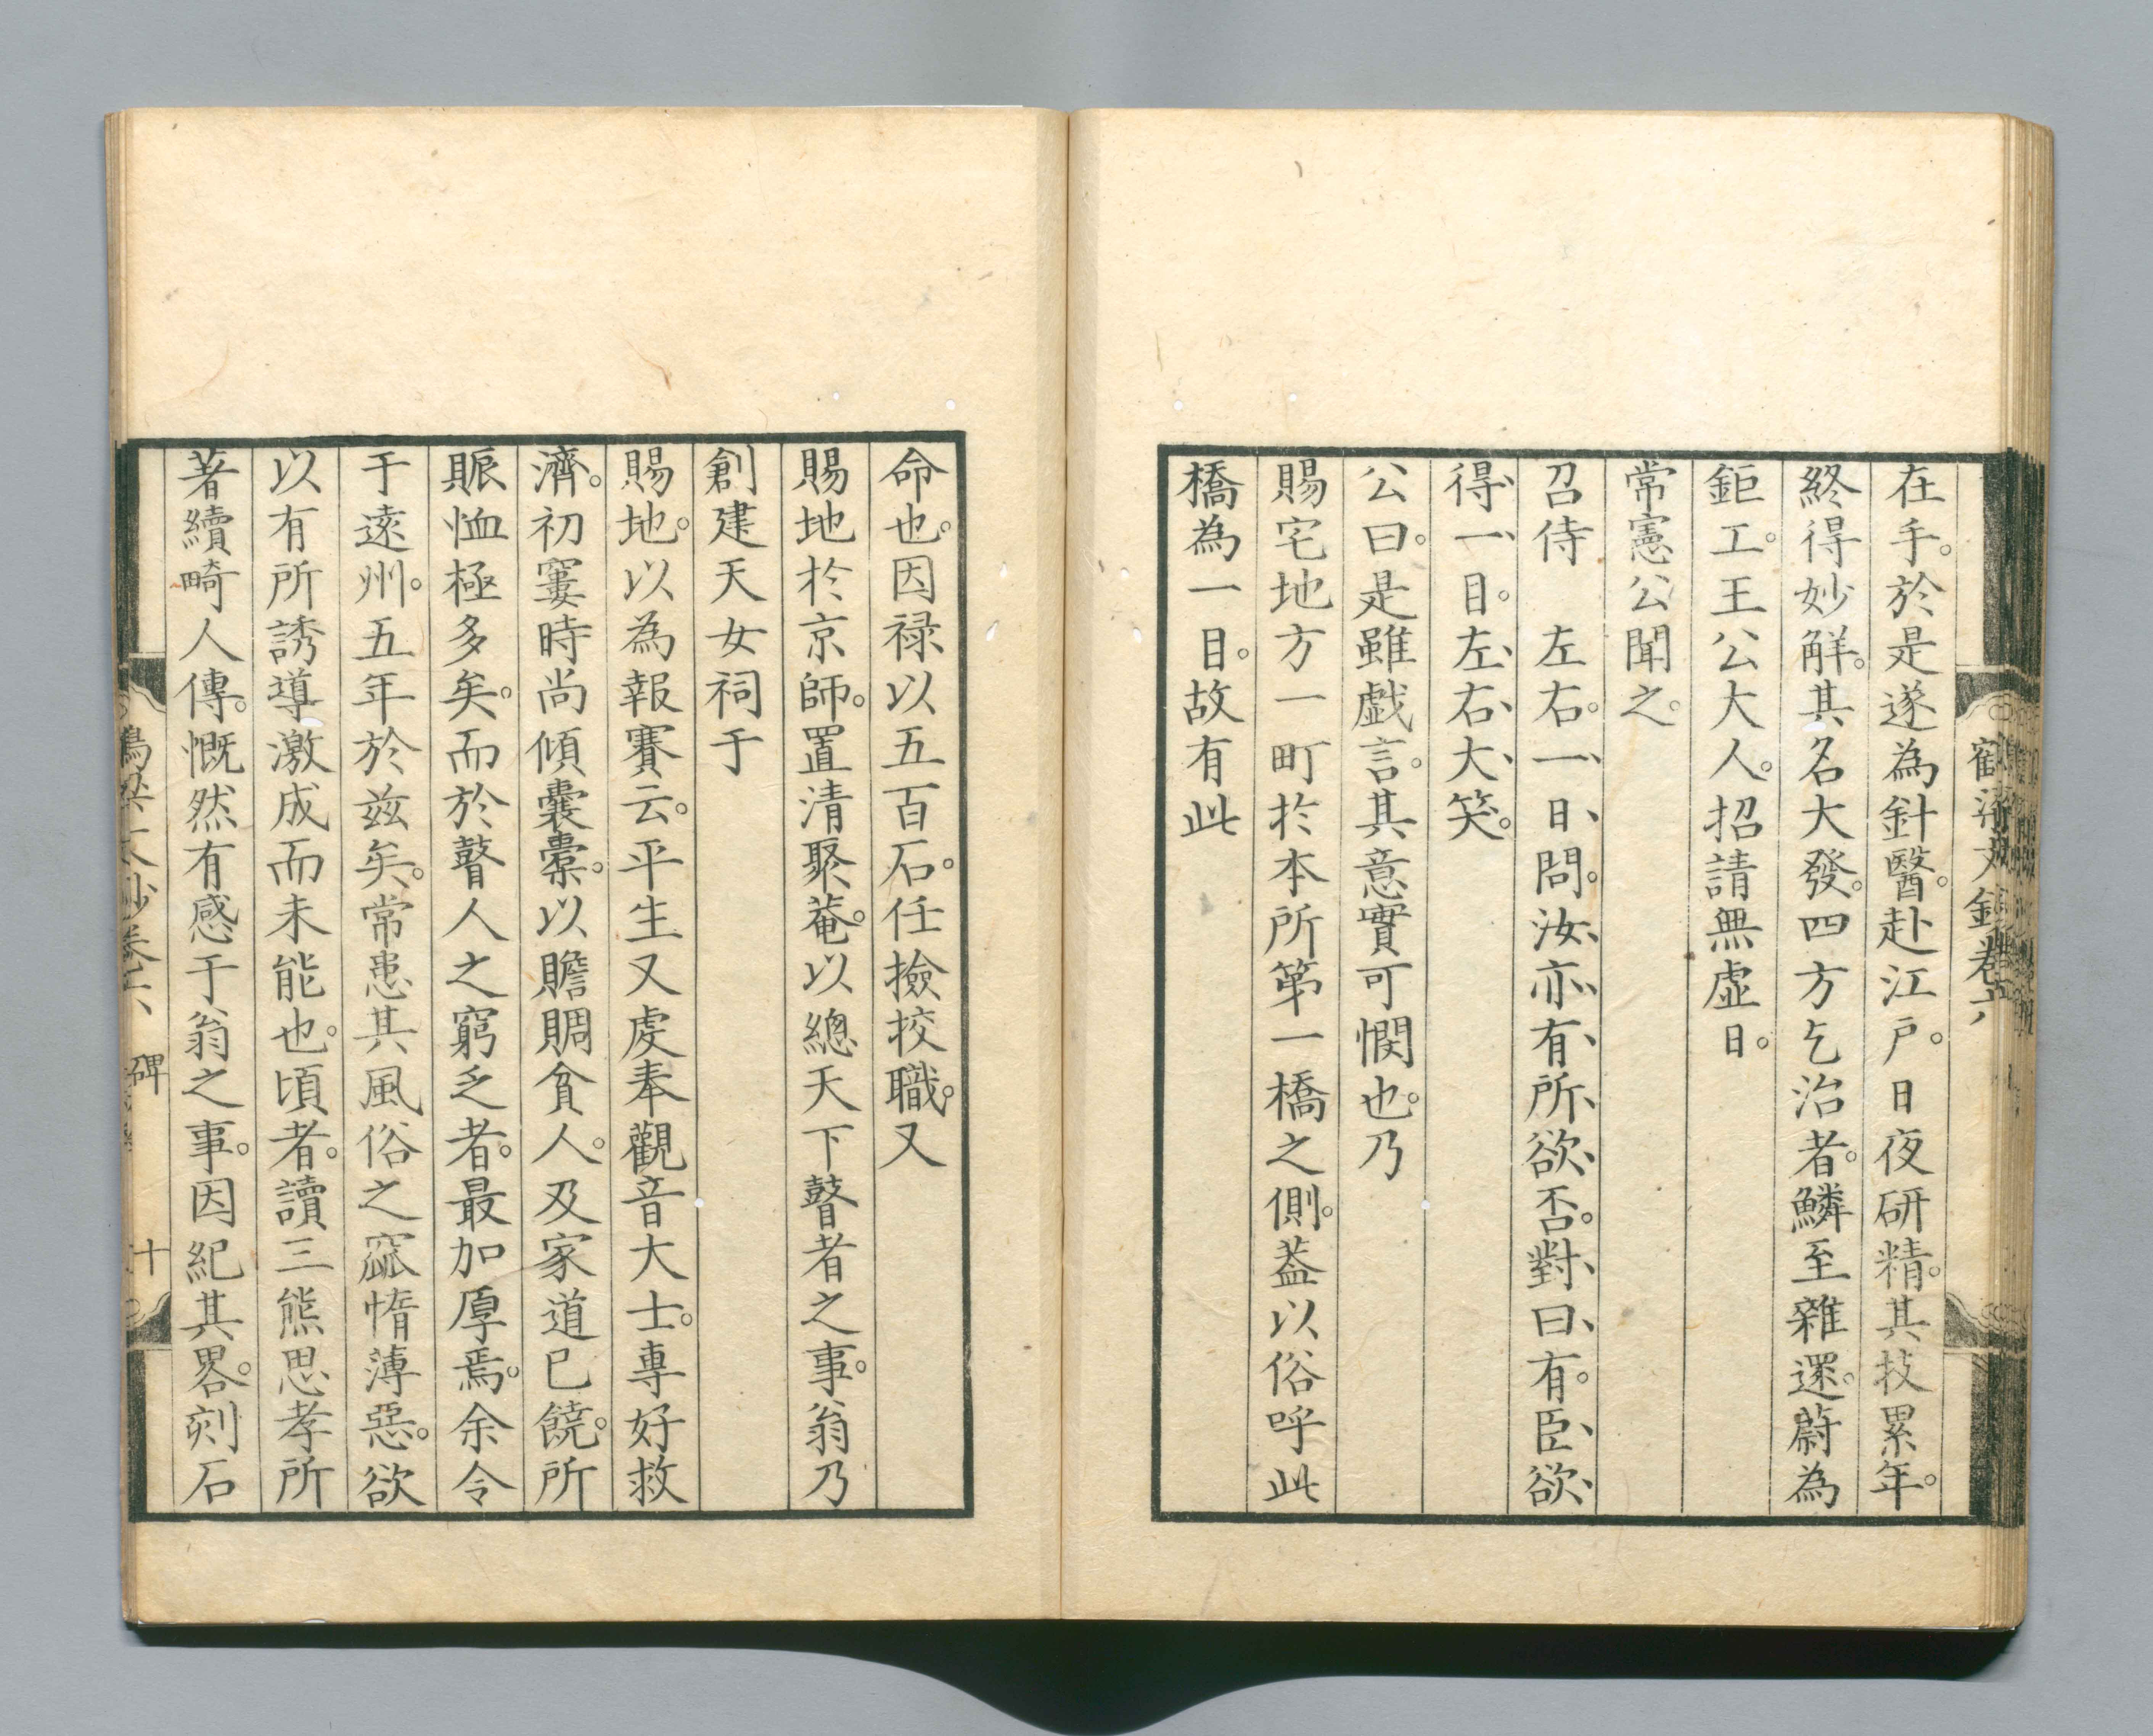 在手。於是遂為針醫。赴江戸。日夜研精。其技累年。
終得妙解。其名大發。四方乞治者。鱗至雜遝。蔚為
鉅工。王公大人。招請無虚日。
常憲公聞之。
召侍　左右。一日、問。汝、亦、有、所、欲、否。對、曰、有。臣、欲、
得、一、目。左、右、大、笑。
公曰。是雖戯言。其意實可憫也。乃
賜宅地方一町於本所第一橋之側。蓋以俗呼此
橋為一目。故有此
命也。因禄以五百石。任撿挍職。又
賜地於京師。置清聚菴。以總天下瞽者之事。翁乃
創建天女祠于
賜地。以為報賽云。平生又虔奉觀音大士。專好救
濟。初窶時尚傾囊橐。以贍賙貧人。及家道已饒。所
賑恤極多矣。而於瞽人之窮乏者。最加厚焉。余令
于遠州。五年於茲矣。常患其風俗之窳惰薄惡。欲
以有所誘導激成而未能也。頃者。讀三熊思孝所
著續畸人傳。慨然有感于翁之事。因紀其畧。刻石
碑
十